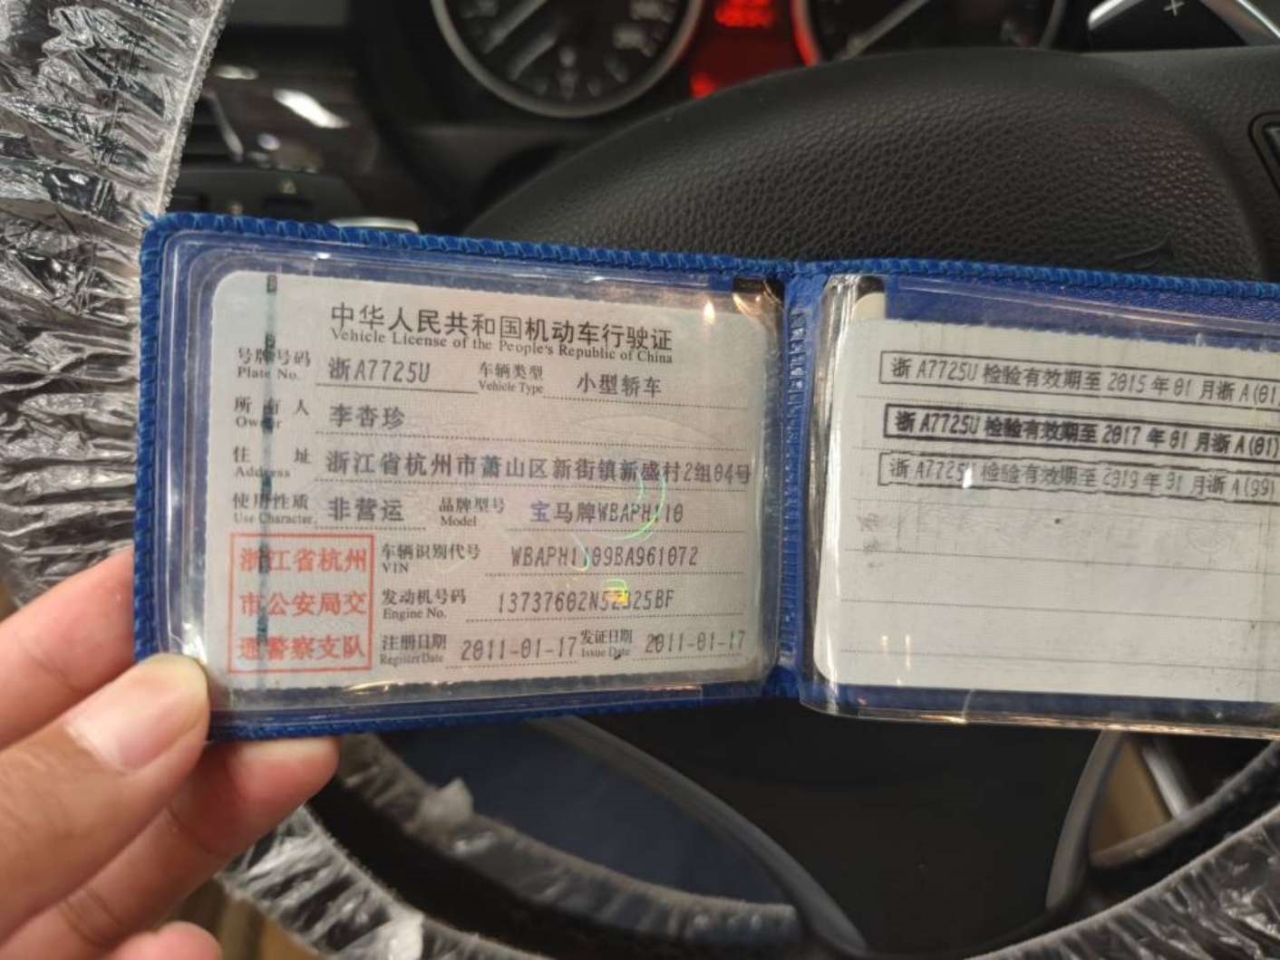 中华人民共和国机动车行驶证
Vehicle License of the People's Republic of China
号牌号码 浙A7725U 车辆类型 小型轿车
Plate No. Vehicle Type
所有人 李杏珍
Owner
住址 浙江省杭州市萧山区新街镇新盛村2组04号
Address
使用性质 非营运 品牌型号 宝马牌WBAPH110
Use Character Model
浙江省杭州
市公安局交
通警察支队
车辆识别代号 WBAPH1109BA961072
VIN
发动机号码
Engine No.
注册日期 2011-01-17 发证日期 2011-01-17
Register Date Issue Date
浙A7725U 检验有效期至 2015年01月浙A(01
浙A7725U 检验有效期至 2017年01月浙A(01)
浙A7725U 检验有效期至 2019年01月浙A(99)